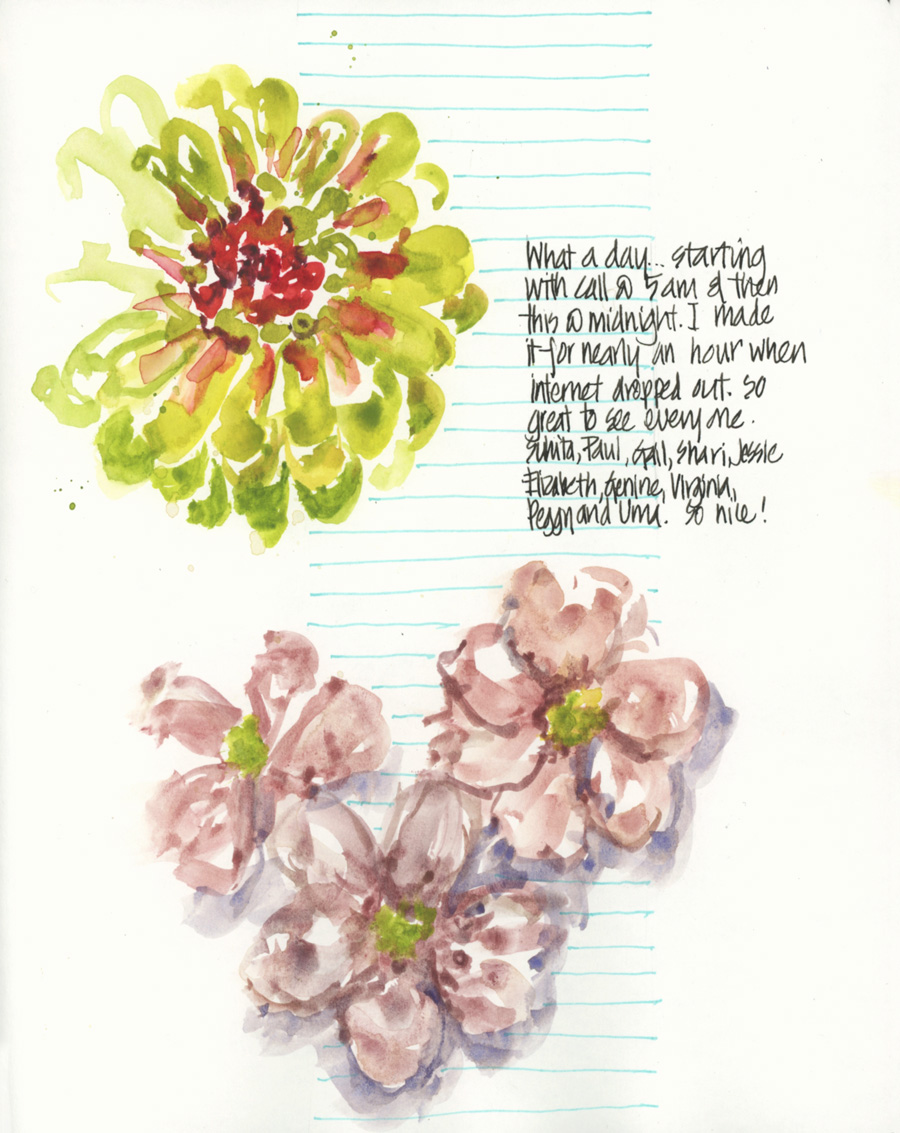 What a day... starting
with call @ 5am & then
this @ midnight. I made
it for nearly an hour when
internet dropped out. So
great to see everyone.
Sunita, Paul, Gail, Shari, Jessie
Elizabeth, Genine, Virginia,
Peggy and Uma. So nice!